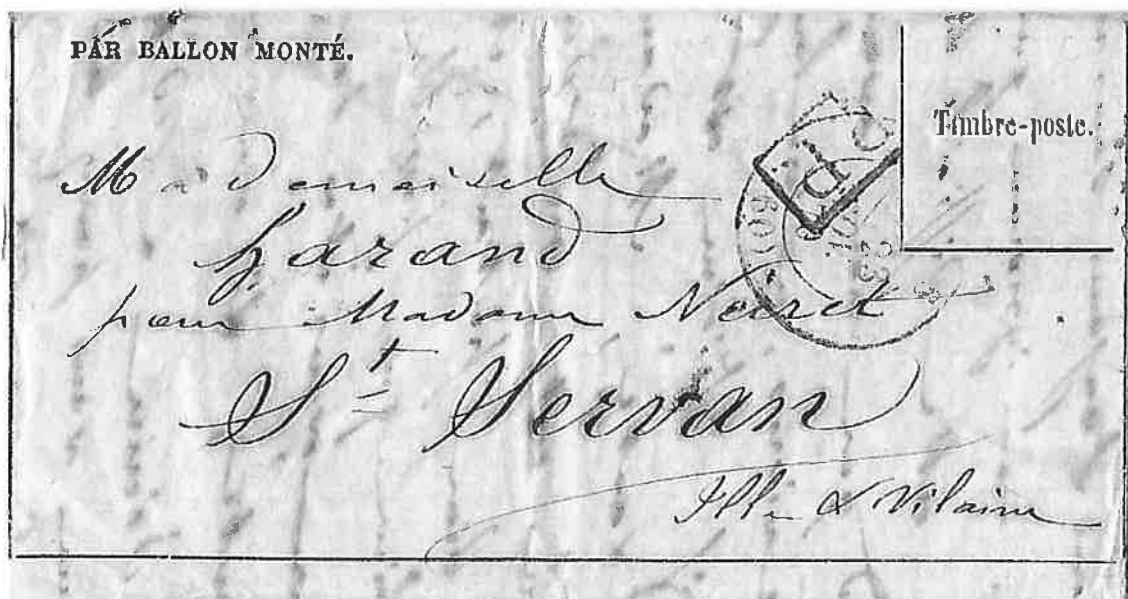 PAR BALLON MONTÉ.
Timbre-poste.
Mademoiselle
pour Madame
St Servan
Ille & Vilaine